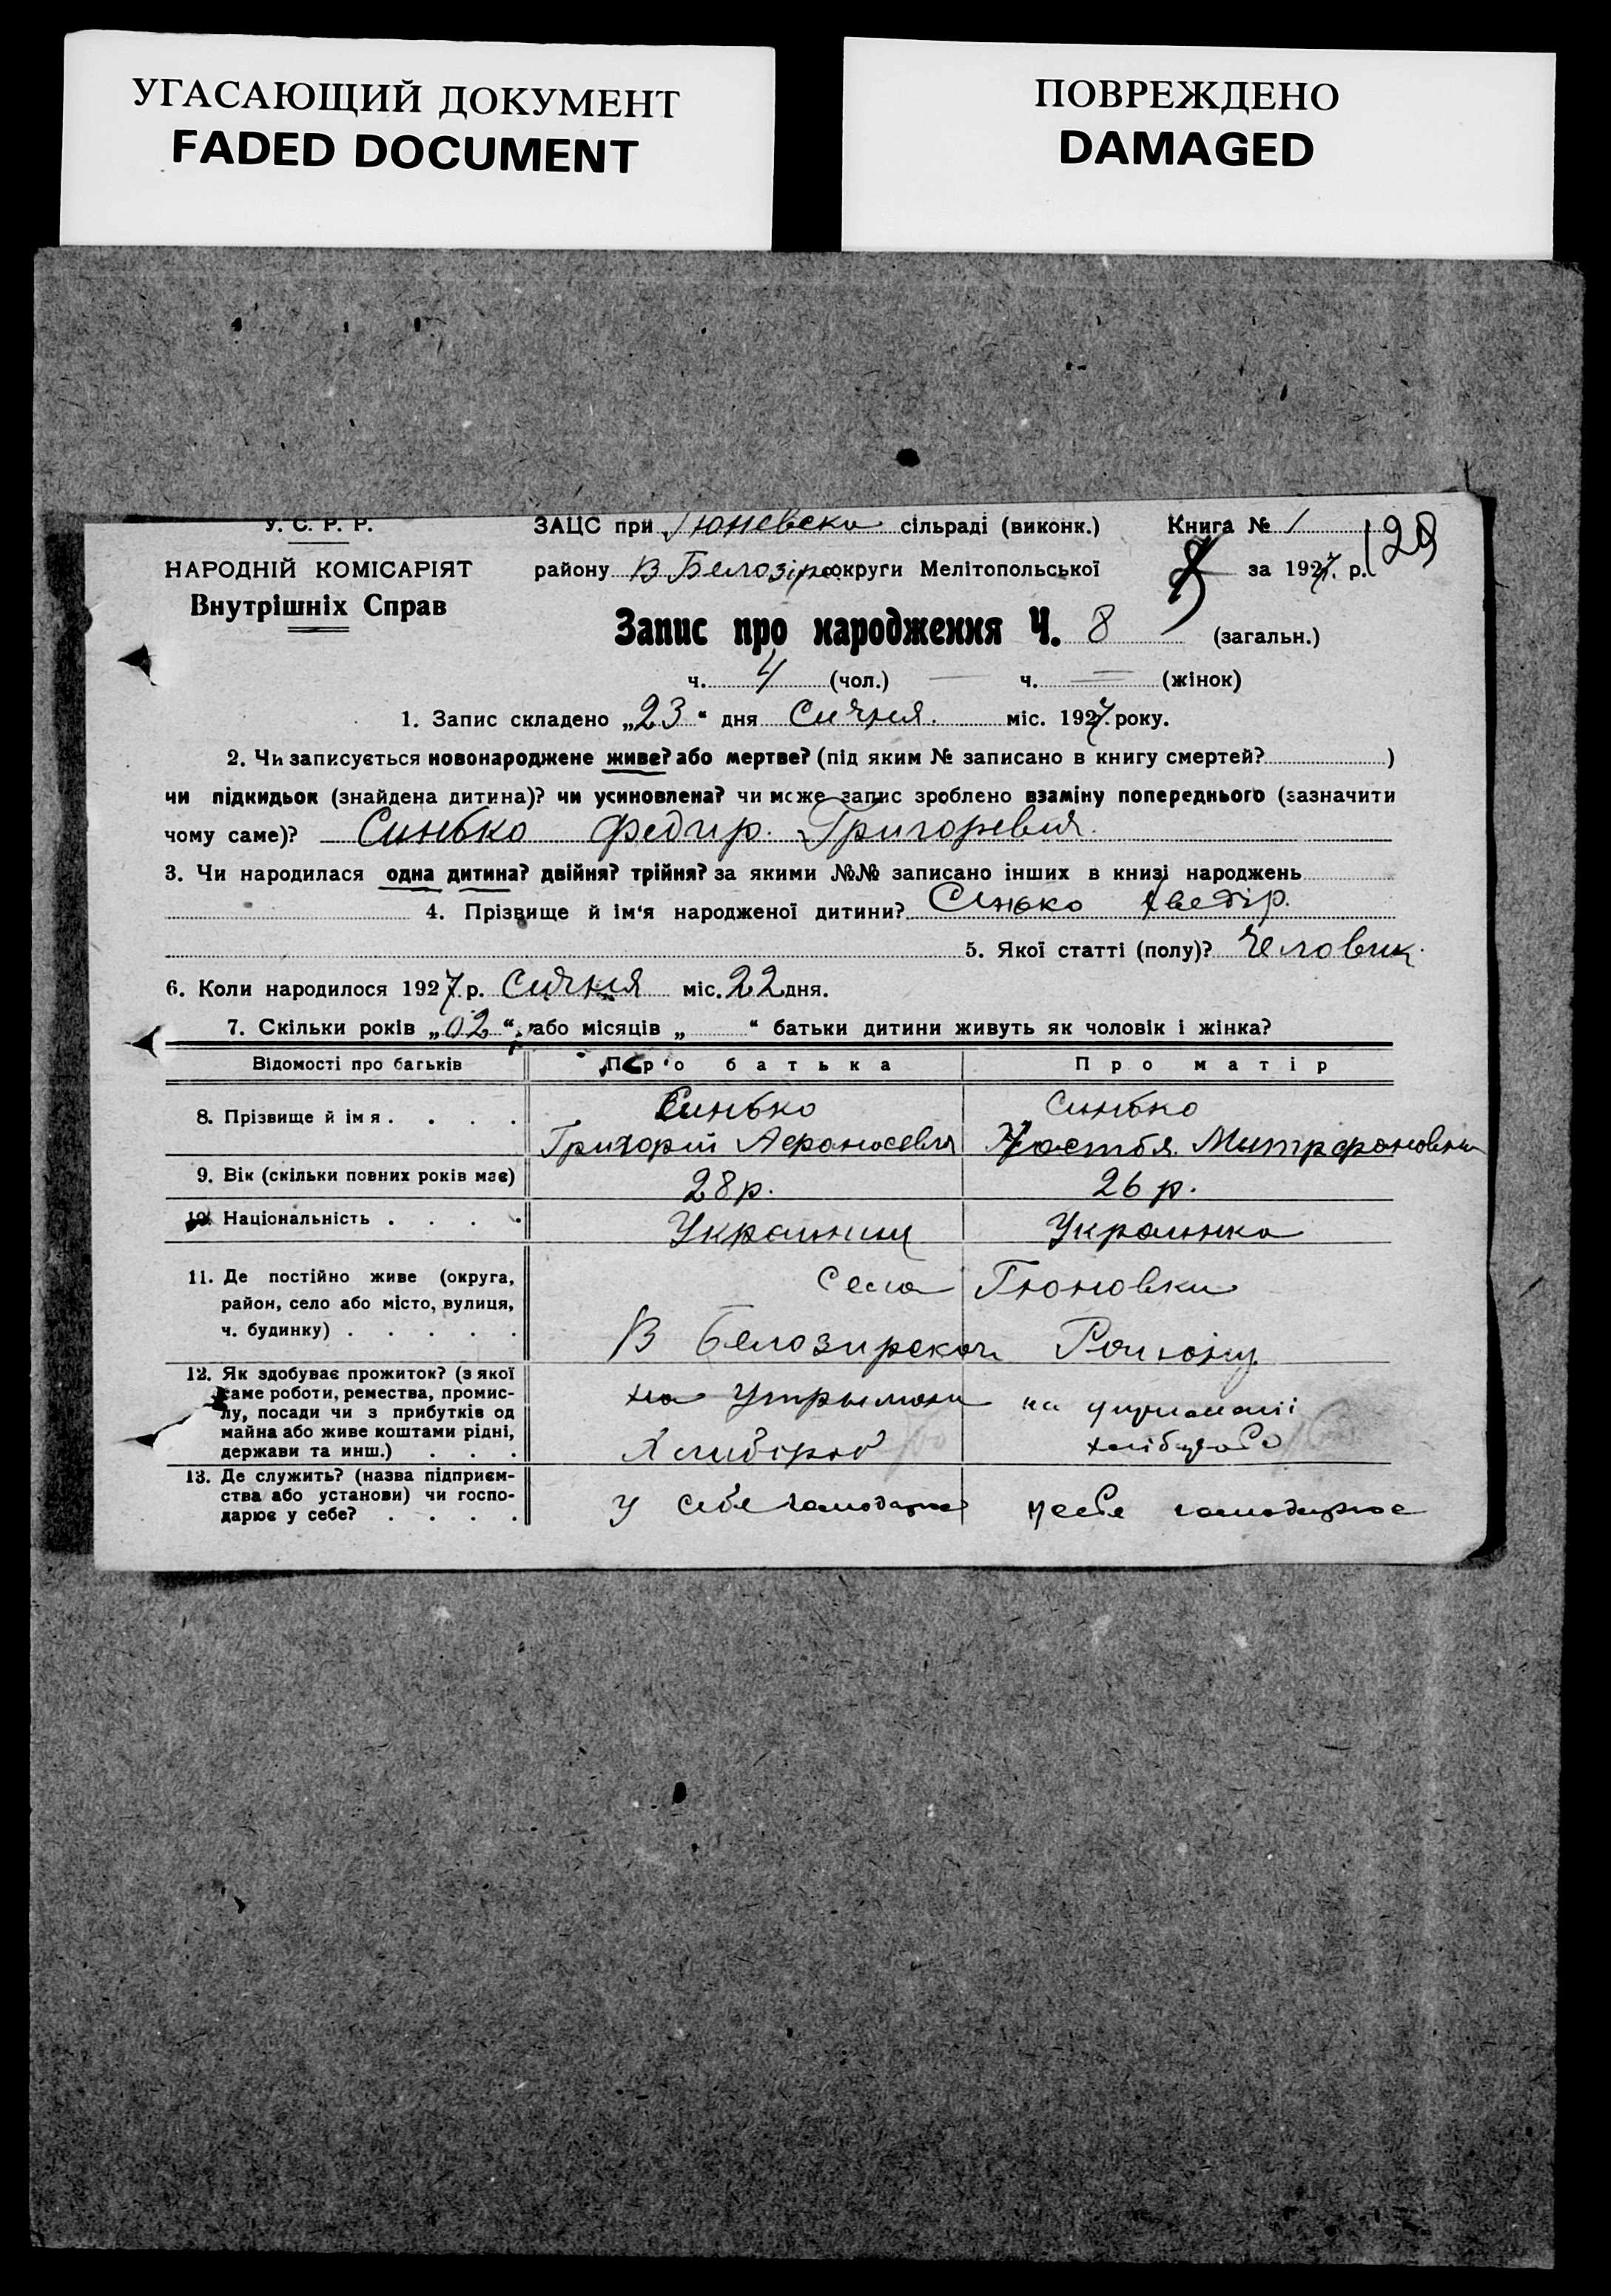 УГАСАЮЩИЙ ДОКУМЕНТ
FADED DOCUMENT
ПОВРЕЖДЕНО
DAMAGED
У. С. Р. Р.
НАРОДНІЙ КОМІСАРІЯТ
Внутрішніх Справ
ЗАЦС при Гюневски сільраді (виконк.) Книга № 1 129
району В Белозірс округи Мелітопольської за 1927. р.
Запис про народження Ч. 8 (загальн.)
ч. 4 (чол.) ч. = (жінок)
1. Запис складено „23“ дня Сичня. міс. 1927. року.
2. Чи записується новонароджене живе? або мертве? (під яким № записано в книгу смертей? )
чи підкидьок (знайдена дитина)? чи усиновлена? чи може запис зроблено взаміну попереднього (зазначити
чому саме)? Синько Федир. Григоревич.
3. Чи народилася одна дитина? двійня? трійня? за якими №№ записано інших в книзі народжень
4. Прізвище й ім‘я народженої дитини? Синько Хведір.
5. Якої статті (полу)? Человик.
6. Коли народилося 1927. р. Сичня міс. 22 дня.
7. Скільки років „02“, або місяців „ “ батьки дитини живуть як чоловік і жінка?
Відомості про батьків Про батька Про матір
8. Прізвище й імя. . . . Синько Синько
Григорий Афанасевич Настья. Митрофановна
9. Вік (скільки повних років має) 28 р. 26 р.
10. Національність . . . . Украинец Украинка
11. Де постійно живе (округа,
район, село або місто, вулиця,
ч. будинку) . . . . .
Села Гюновки
В Белозирском Району
12. Як здобуває прожиток? (з якої
саме роботи, ремества, промис-
лу, посади чи з прибутків од
майна або живе коштами рідні,
держави та инш.) . . .
на Утрымани на
Хлибороб
13. Де служить? (назва підприєм-
ства або установи) чи госпо-
дарює у себе? . . . .
У себе у себе